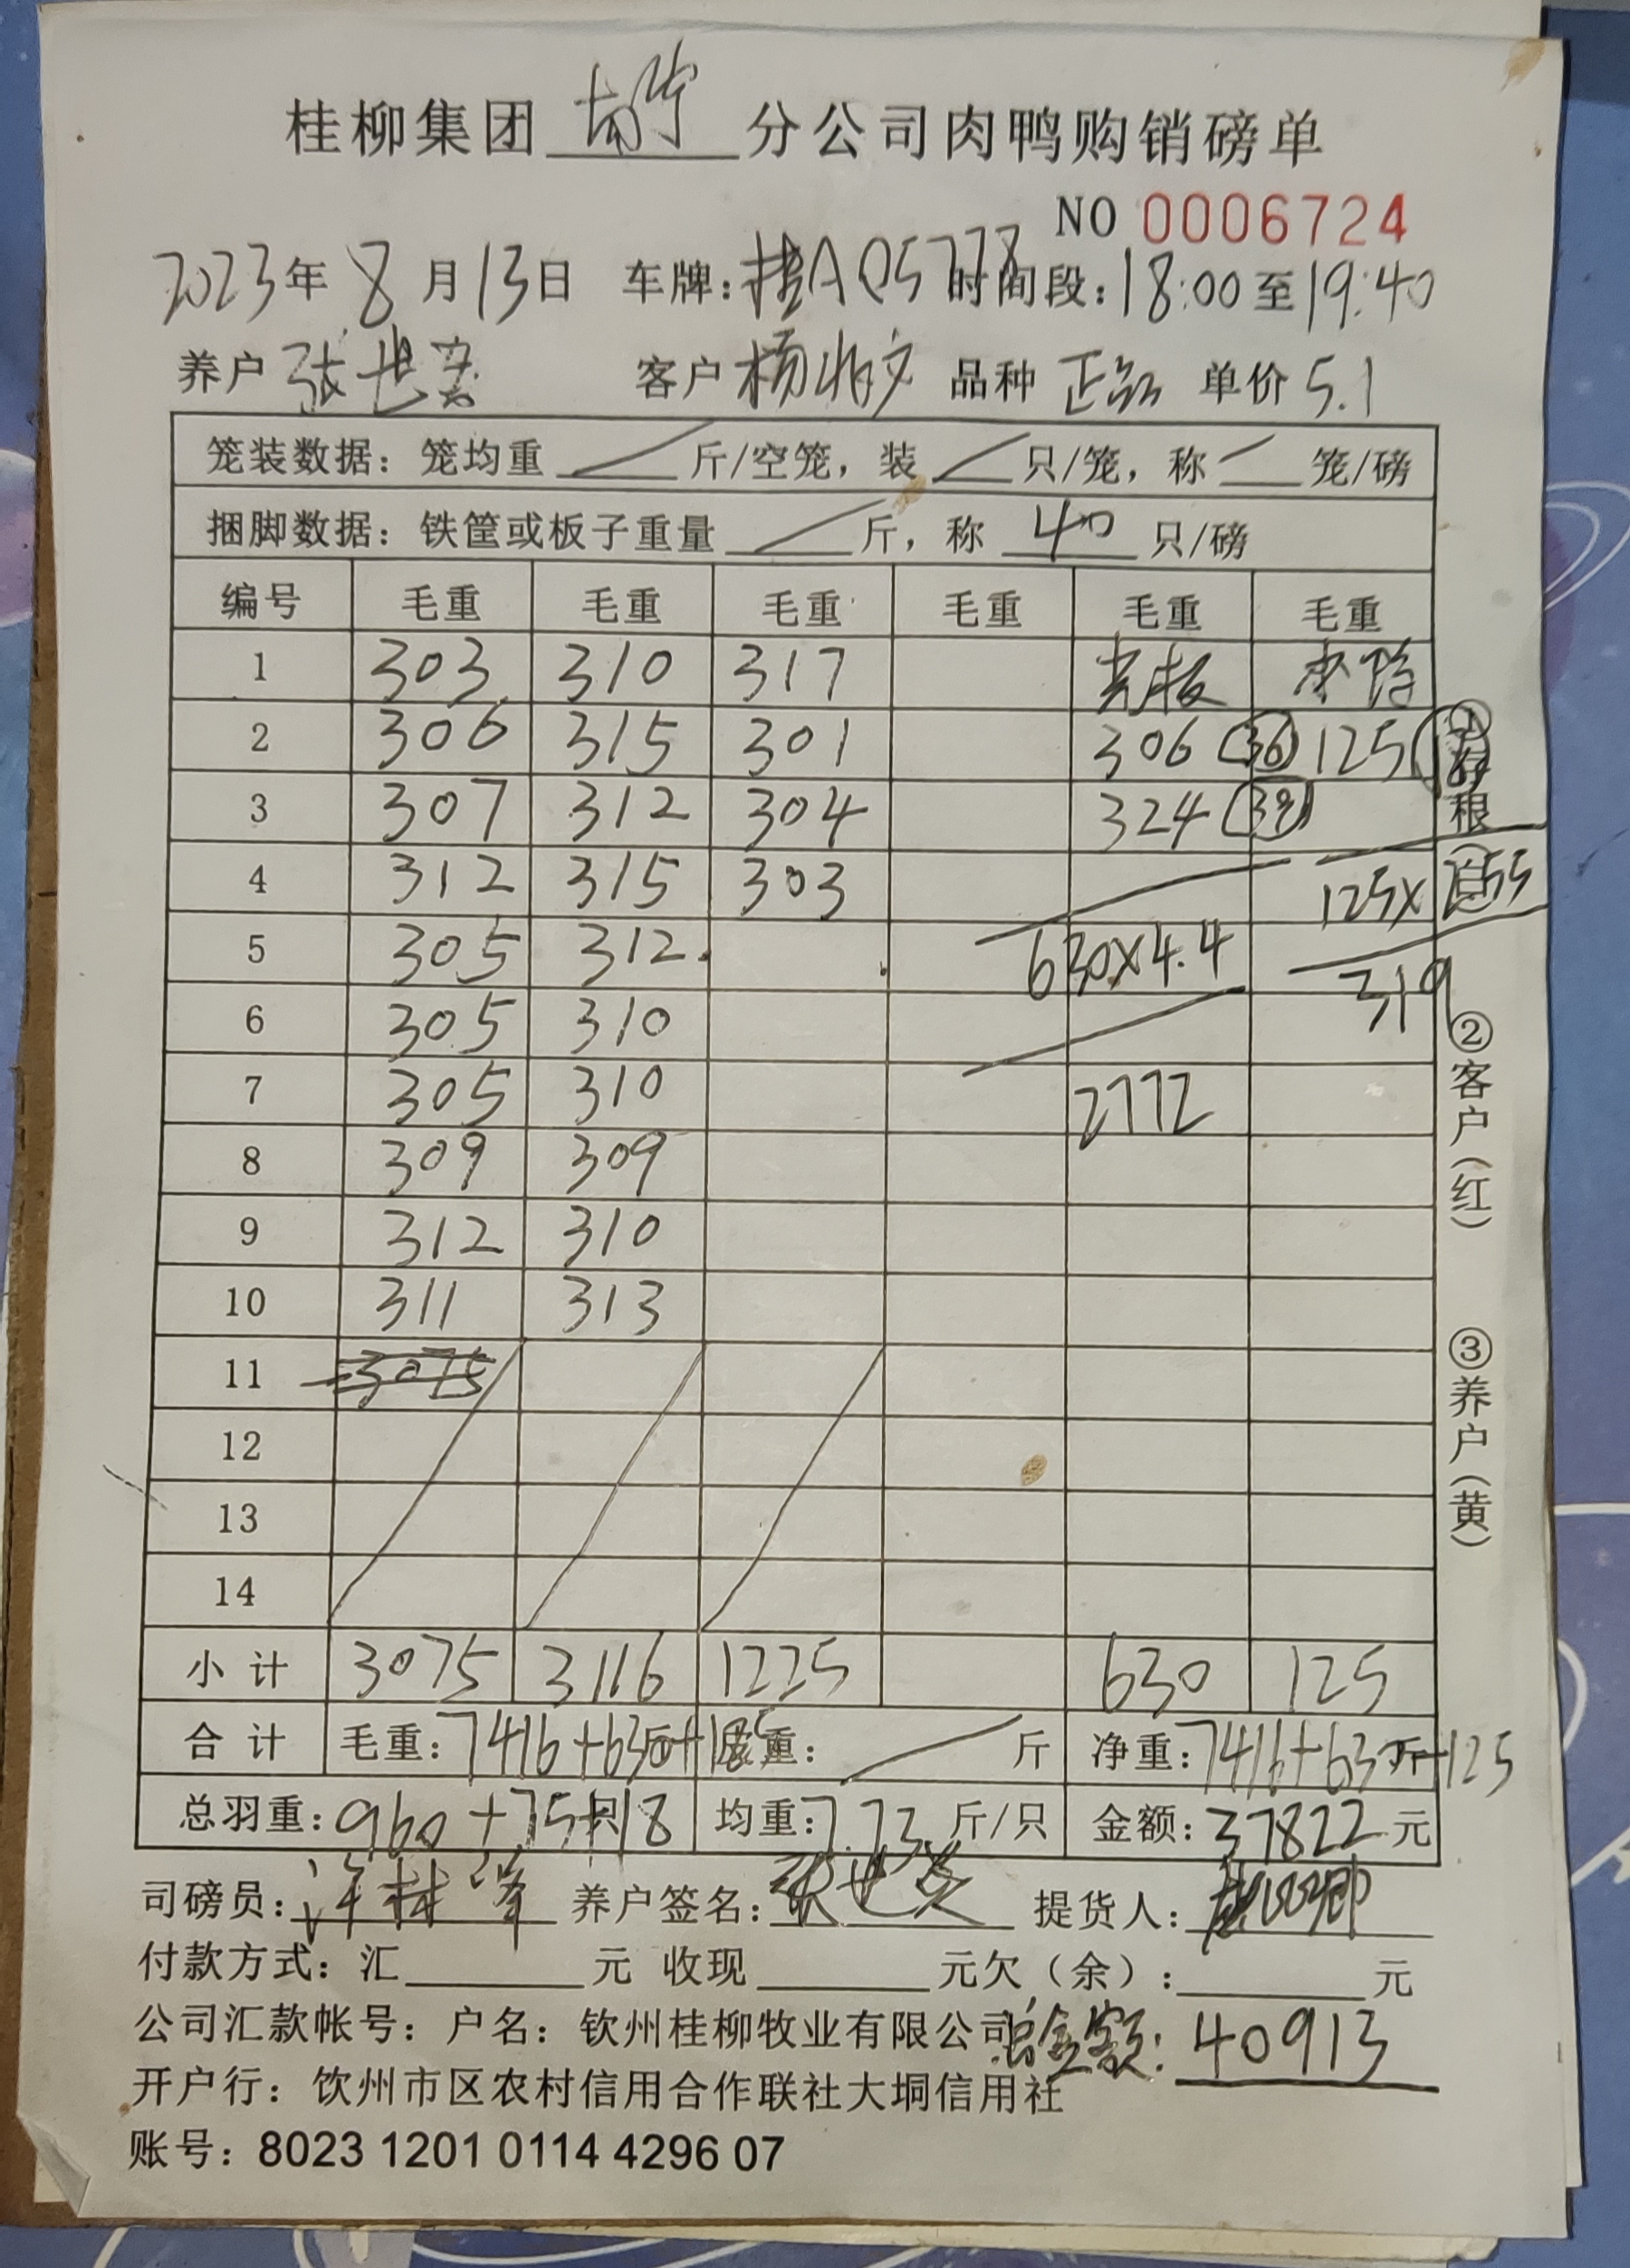 桂柳集团 南宁 分公司肉鸭购销磅单
NO 0006724
2023年 8月13日 车牌:桂AQ5778 时间段:18:00至19:40
养户 张世 客户 杨 品种 正品 单价 5.1
笼装数据: 笼均重 / 斤/空笼, 装 / 只/笼, 称 / 笼/磅
捆脚数据: 铁筐或板子重量 / 斤, 称 40 只/磅
编号 毛重 毛重 毛重 毛重 毛重 毛重
1 303 310 317 光板
2 306 315 301 306 (36) 125
3 307 312 304 324 (39)
4 312 315 303 125×2.55
5 305 312 630×4.4
6 305 310 319
7 305 310 2772
8 309 309
9 312 310
10 311 313
11 3075
12
13
14
小计 3075 3116 1225 630 125
合计 毛重:7416+630+125 皮重: / 斤 净重:7416+630斤+125
总羽重:960+75+18只 均重:7.73 斤/只 金额:37822元
司磅员:许林峰 养户签名:张世 提货人:
付款方式: 汇 元 收现 元欠(余): 元
公司汇款帐号: 户名: 钦州桂柳牧业有限公司 总金额: 40913
开户行: 饮州市区农村信用合作联社大垌信用社
账号: 8023 1201 0114 4296 07
①存根
②客户(红)
③养户(黄)